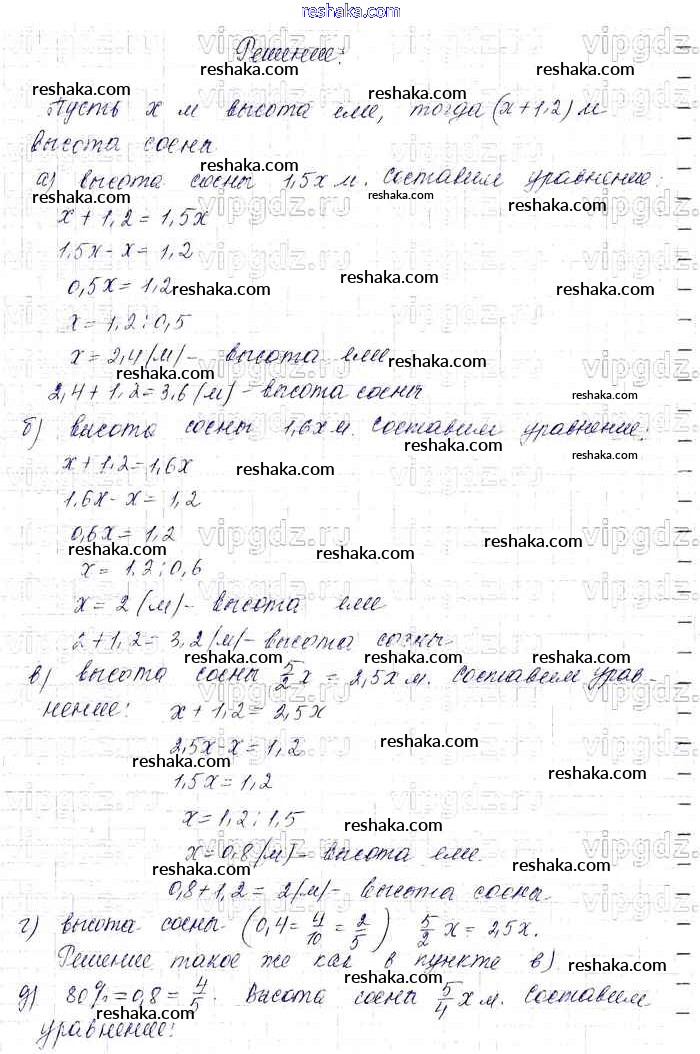 reshaka.com
Решение:
Пусть x м высота ели, тогда (x+1,2) м
высота сосны
а) высота сосны 1,5x м. Составим уравнение:
x + 1,2 = 1,5x
1,5x - x = 1,2
0,5x = 1,2
x = 1,2 : 0,5
x = 2,4 (м) - высота ели
2,4 + 1,2 = 3,6 (м) - высота сосны
б) высота сосны 1,6x м. Составим уравнение:
x + 1,2 = 1,6x
1,6x - x = 1,2
0,6x = 1,2
x = 1,2 : 0,6
x = 2 (м) - высота ели
2 + 1,2 = 3,2 (м) - высота сосны
в) высота сосны 5/2 x = 2,5x м. Составим урав-
нение: x + 1,2 = 2,5x
2,5x - x = 1,2
1,5x = 1,2
x = 1,2 : 1,5
x = 0,8 (м) - высота ели.
0,8 + 1,2 = 2 (м) - высота сосны.
г) высота сосны (0,4 = 4/10 = 2/5) 5/2 x = 2,5x.
Решение такое же как в пункте в)
д) 80% = 0,8 = 4/5. Высота сосны 5/4 x м. Составим
уравнение: